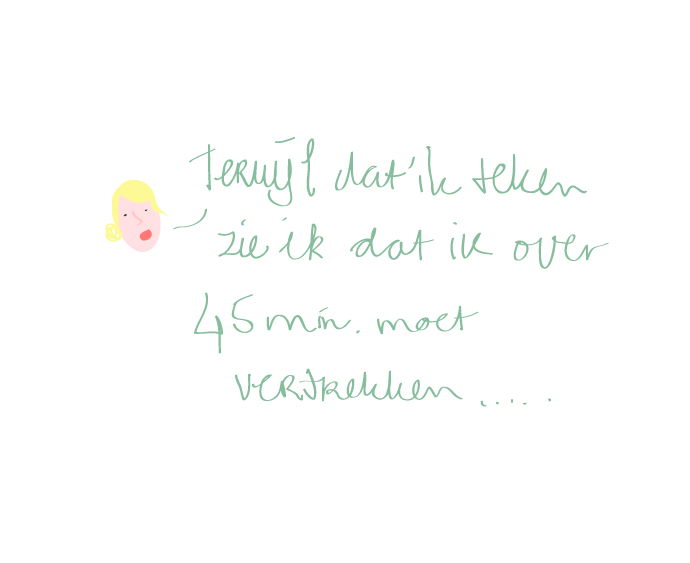 Terwijl dat ik teken
zie ik dat ik over
45 min. moet
vertrekken .....